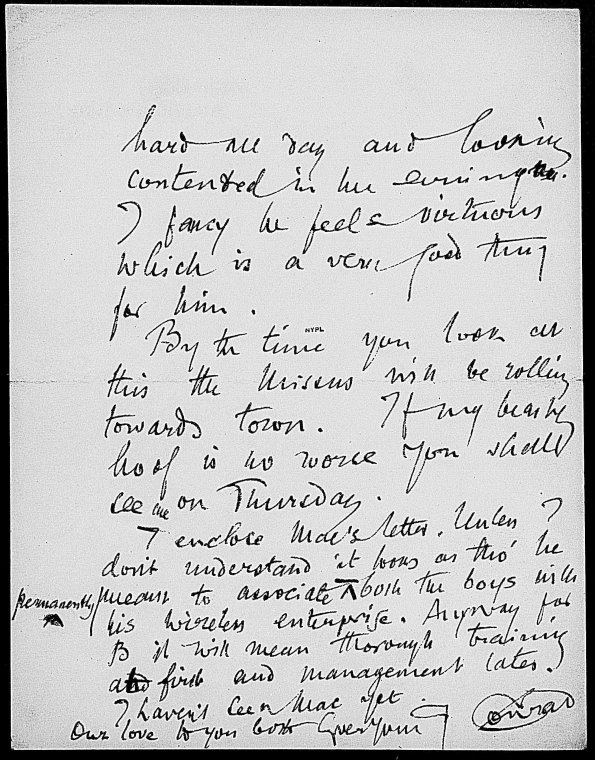 hard all day and looking
contented in the evening.
I fancy he feels virtuous
which is a very good thing
for him.
NYPL
By the time you look at
this the Missus will be rolling
towards town. If my beastly
hoof is no worse you shall
see me on Thursday.
I enclose Mac's letter. Unless I
don't understand it looks as tho' he
means to associate permanently both the boys with
his wireless enterprise. Anyway for
B it will mean thorough training
at first and management later.
I haven't seen Mac yet.
Our love to you both Ever Your
Conrad